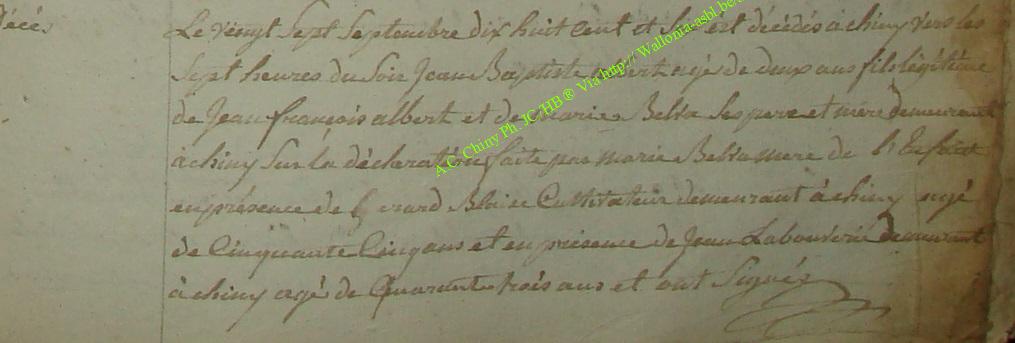 décès
Le vingt Sept Septembre dix huit cent et Six est décédés à chiny vers les
Sept heures du Soir Jean Baptiste albert agé de deux ans fils légitime
de Jean françois albert et de marie Bella Ses pere et mère demeurant
à chiny Sur la déclaration faite par marie Bella mere de l'Enfant
en présence de Gerard Blaise Cultivateur demeurant à chiny agé
de Cinquante Cinq ans et en présence de Jean Labouverie demeurant
à chiny agé de Quarante trois ans et ont Signés
A.C. Chiny Ph. JC/HB ® Via http://Wallonia-asbl.be/